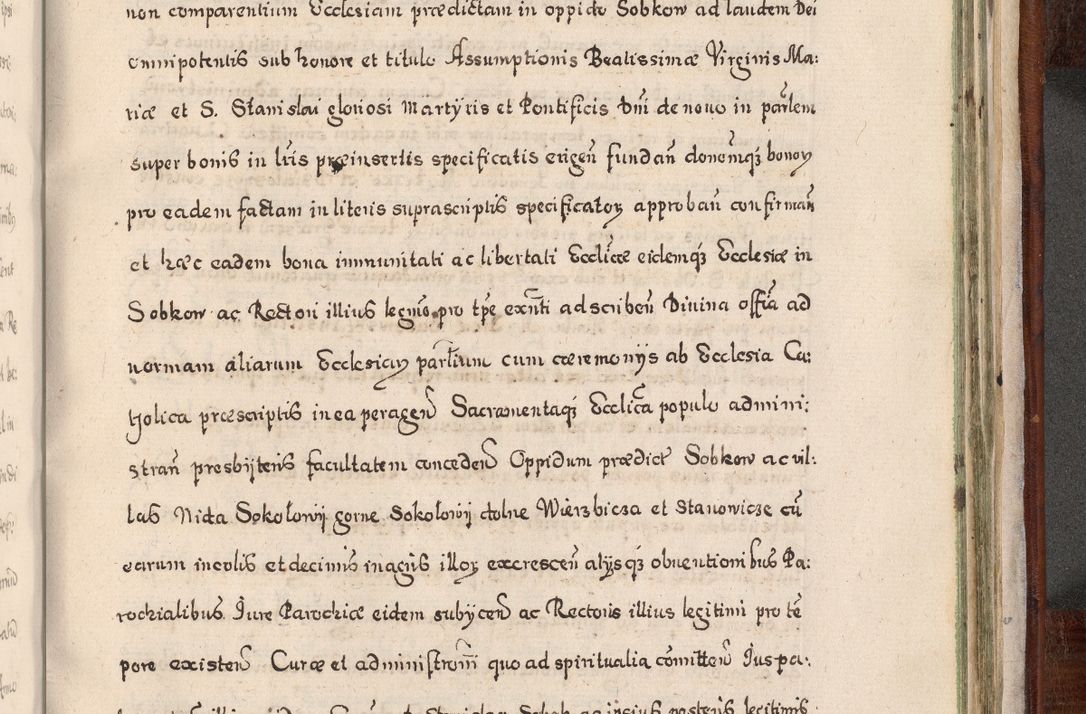 non comparentium Ecclesiam prædictam in oppido Sobkow ad laudem Dei
omnipotentis sub honore et titulo Assumptionis Beatissimæ Virginis Ma:
riæ et S. Stanislai gloriosi Martyris et Pontificis Dni de novo in partem
super bonis in lris præinsertis specificatis erigen fundan donemqz bonoꝝ
pro eadem factam in literis suprascriptis specificatoꝝ approban confirman
et hæc eadem bona immunitati ac libertati Ecclicæ eidemqz Ecclesiæ in
Sobkow ac Rectori illius legmo pro tpe exnti adscriben Divina offia ad
normam aliarum Ecclesiaꝝ partium cum cæremonijs ab Ecclesia Ca:
tholica præscriptis in ea peragen Sacramentaqz Ecclica populo admini:
stran presbijteris facultatem conceden Oppidum prædict Sobkow ac vil:
las Nida Sokołowij gorne Sokołowij dolne Wierzbicza et Stanowicze cu
earum incolis et decimis in agris illoꝝ excrescen alijsqz obventionibus Pa:
rochialibus Jure Parochiæ eidem subijcen ac Rectoris illius legitimi pro te
pore existen Curæ et administroni quo ad spiritualia comitten Jus pa: